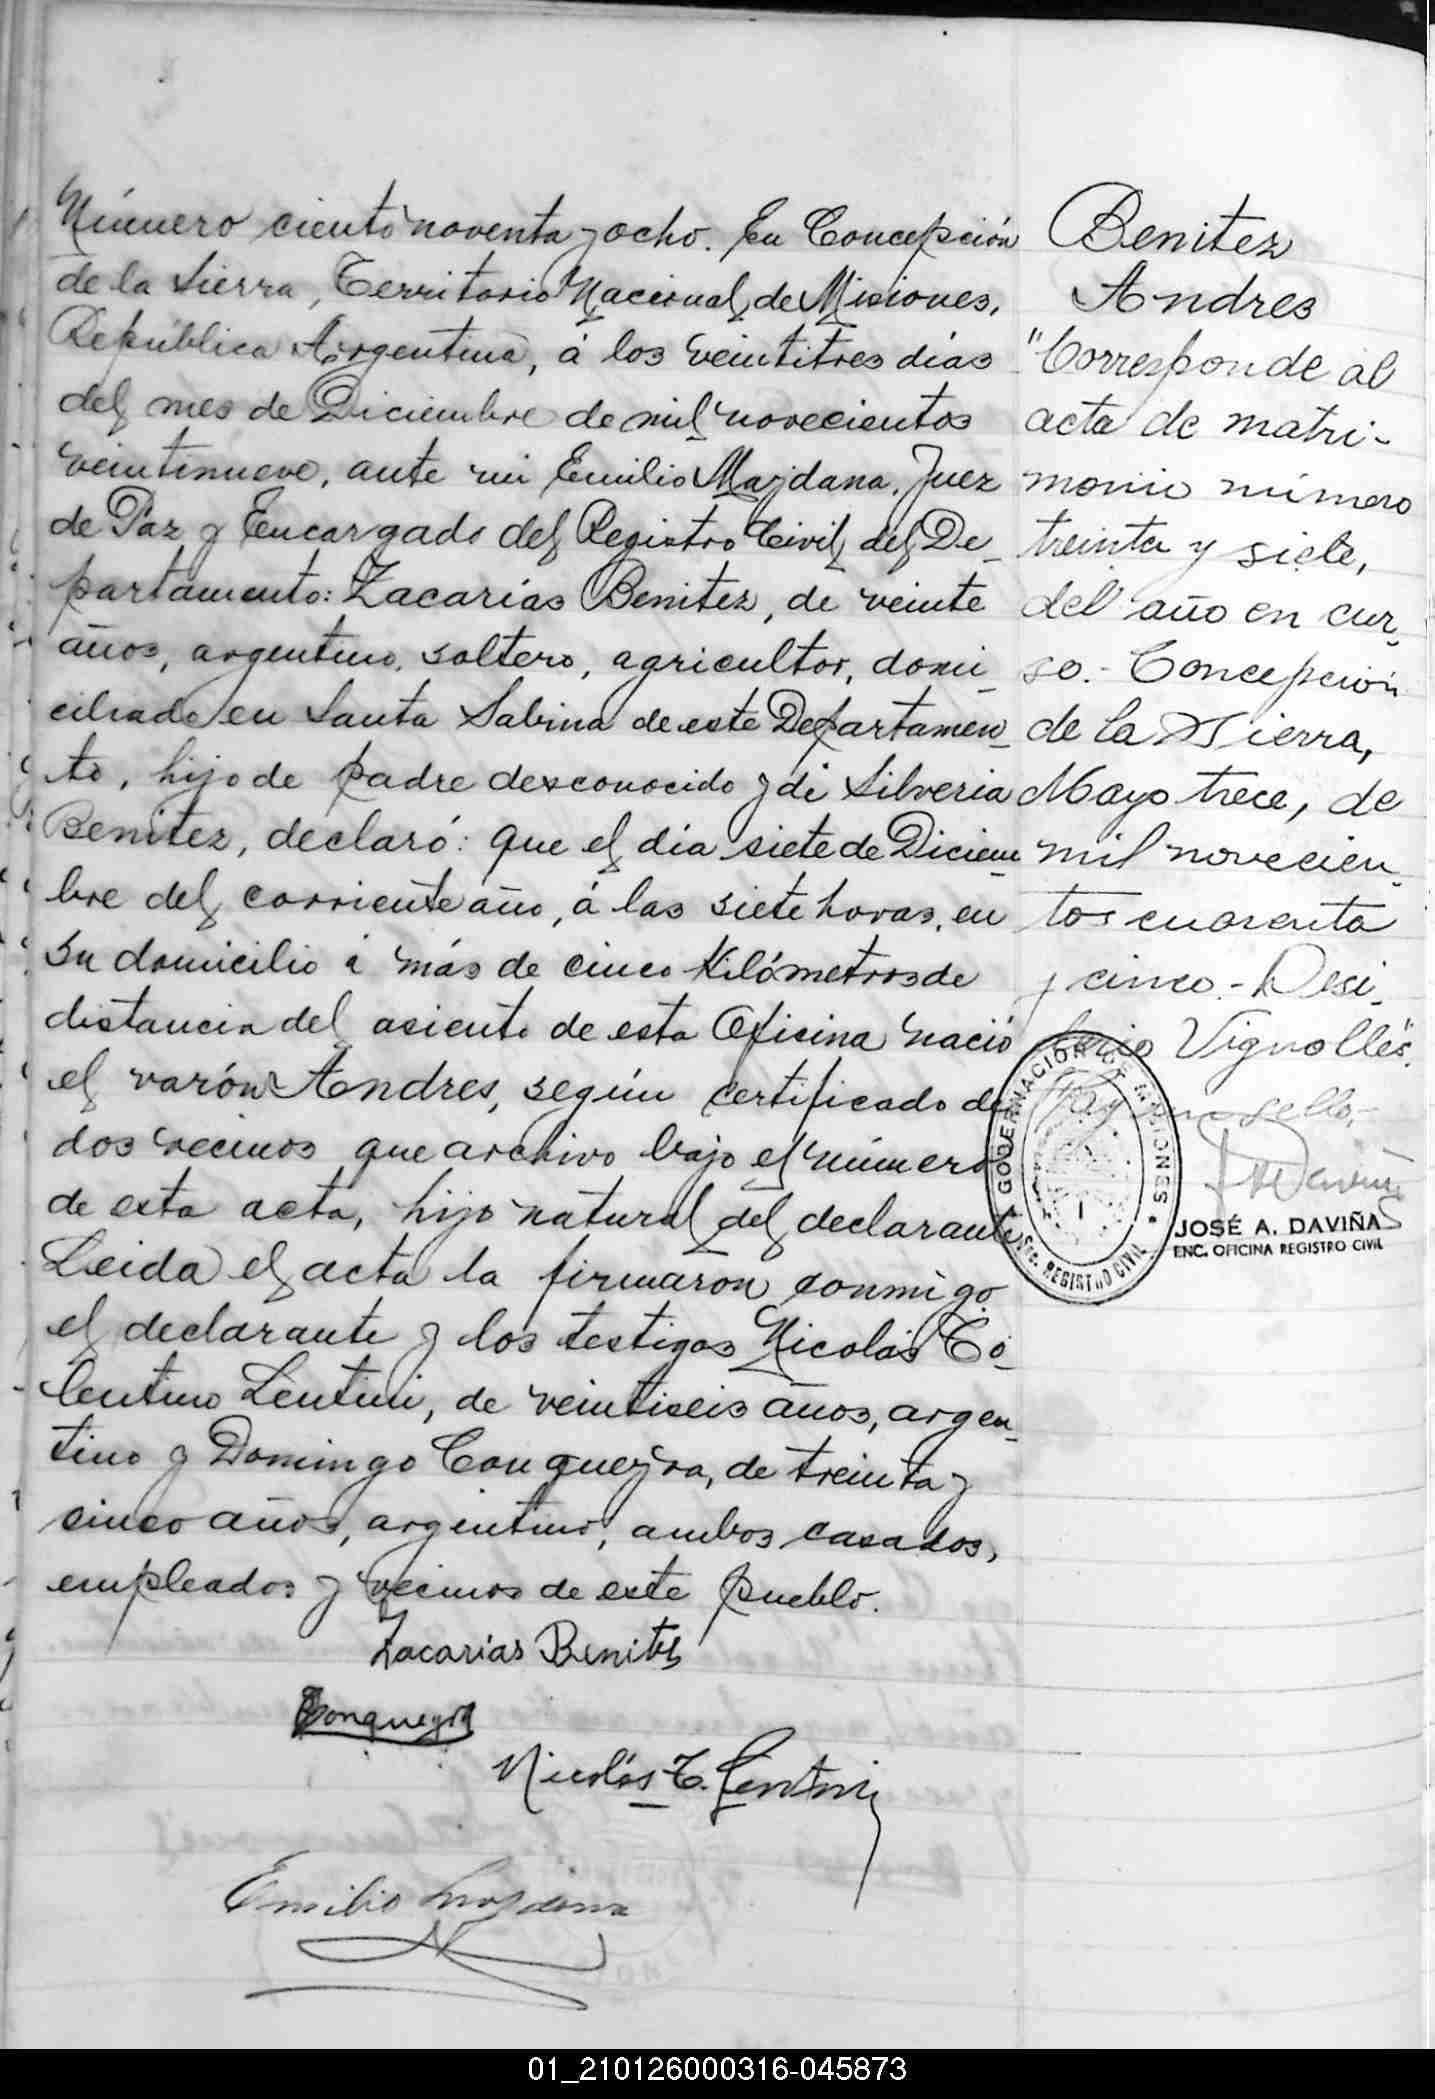 Número ciento noventa y ocho. En Concepción
de la Sierra, Territorio Nacional de Misiones,
República Argentina, á los veintitres días
del mes de Diciembre de mil novecientos
veintinueve, ante mi Emilio Majdana, Juez
de Paz y Encargado del Registro Civil del De-
partamento: Zacarías Benitez, de veinte
años, argentino, soltero, agricultor, domi-
ciliado en Santa Sabina de este Departamen-
to, hijo de padre desconocido y de Silveria
Benitez, declaró: que el día siete de Diciem
bre del corriente año, á las siete horas, en
su domicilio á más de cinco Kilómetros de
distancia del asiento de esta Oficina nació
el varón Andres, según certificado de
dos vecinos que archivo bajo el número
de esta acta, hijo natural del declarante
Leida el acta la firmaron conmigo
el declarante y los testigos Nicolás Co-
lentino Lentini, de veintiseis años, argen-
tino y Domingo Conqueyra, de treinta y
cinco años, argentino, ambos casados,
empleados y vecinos de este pueblo.
Zacarias Benites
Conqueyra
Nicolás C. Lentini
Emilio Majdana
Benitez
Andres
"Corresponde al
acta de matri-
monio número
treinta y siete,
del año en cur-
so.- Concepción
de la Sierra,
Mayo trece, de
mil novecien-
tos cuarenta
y cinco.- Desi-
Vignolles".
sello.-
GOBERNACIÓN DE MISIONES
REGISTRO CIVIL
JOSÉ A. DAVIÑA
ENC. OFICINA REGISTRO CIVIL
01_210126000316-045873